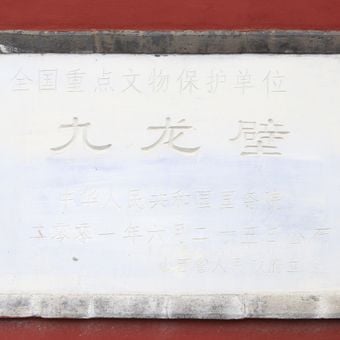 全国重点文物保护单位
九龙壁
中华人民共和国国务院
二零零一年六月二十五日公布
山西省人民政府立